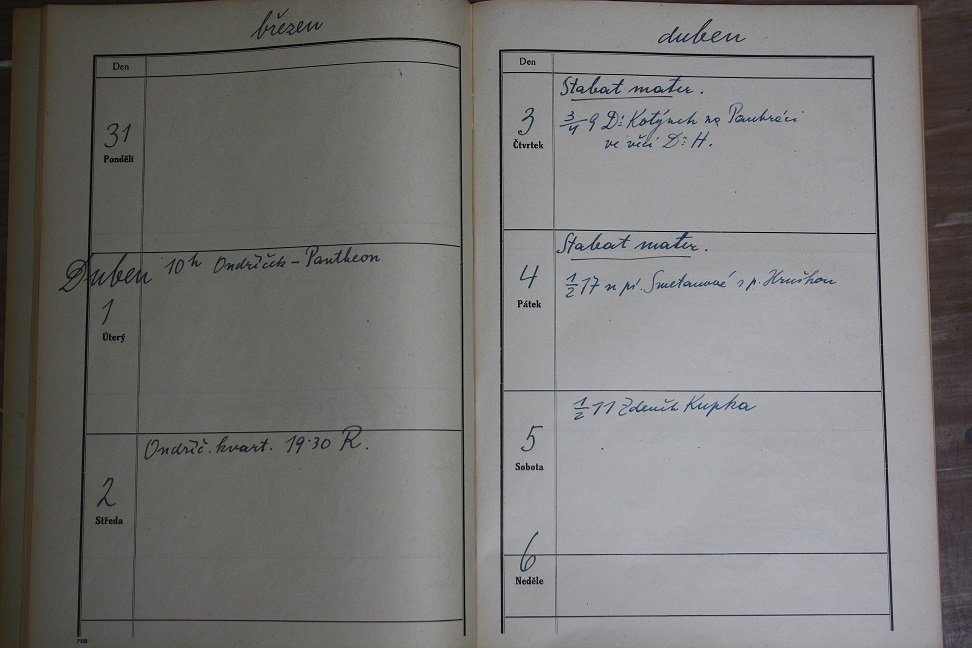 březen
Den
31
Pondělí
Duben 10h Ondříček - Pantheon
1
Úterý
Ondříč. kvart. 19·30 R.
2
Středa
duben
Den
Stabat mater.
3
Čtvrtek
3/4 9 Dr Kotýnek na Pankráci
ve věci Dr H.
Stabat mater.
4
Pátek
1/2 17 u pí. Smetanové s p. Hruškou
1/2 11 Zdeněk Kupka
5
Sobota
6
Neděle